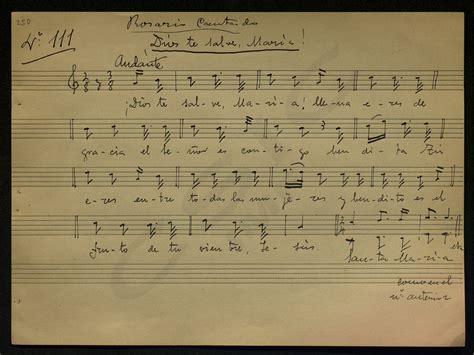 250
Nº 111
Rosario Cantado
Dios te salve, María!
Andante
¡Dios te sal-ve, Ma-ri-a! lle-na e-res de
gra-cia el se-ñor es con-ti-go ben-di-ta
e-res en-tre to-das las mu-je-res y ben-di-to es el
fru-to de tu vientre, Je-sús.
San-ta Ma-ri-a etc
como en el
nº anterior